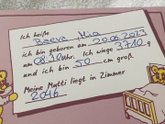 Ich heiße
Baeva Mia
ich bin geboren am 20.06.2023
um 08.30 Uhr. Ich wiege 3710 g
und ich bin 50 cm groß.
Meine Mutti liegt in Zimmer
2046